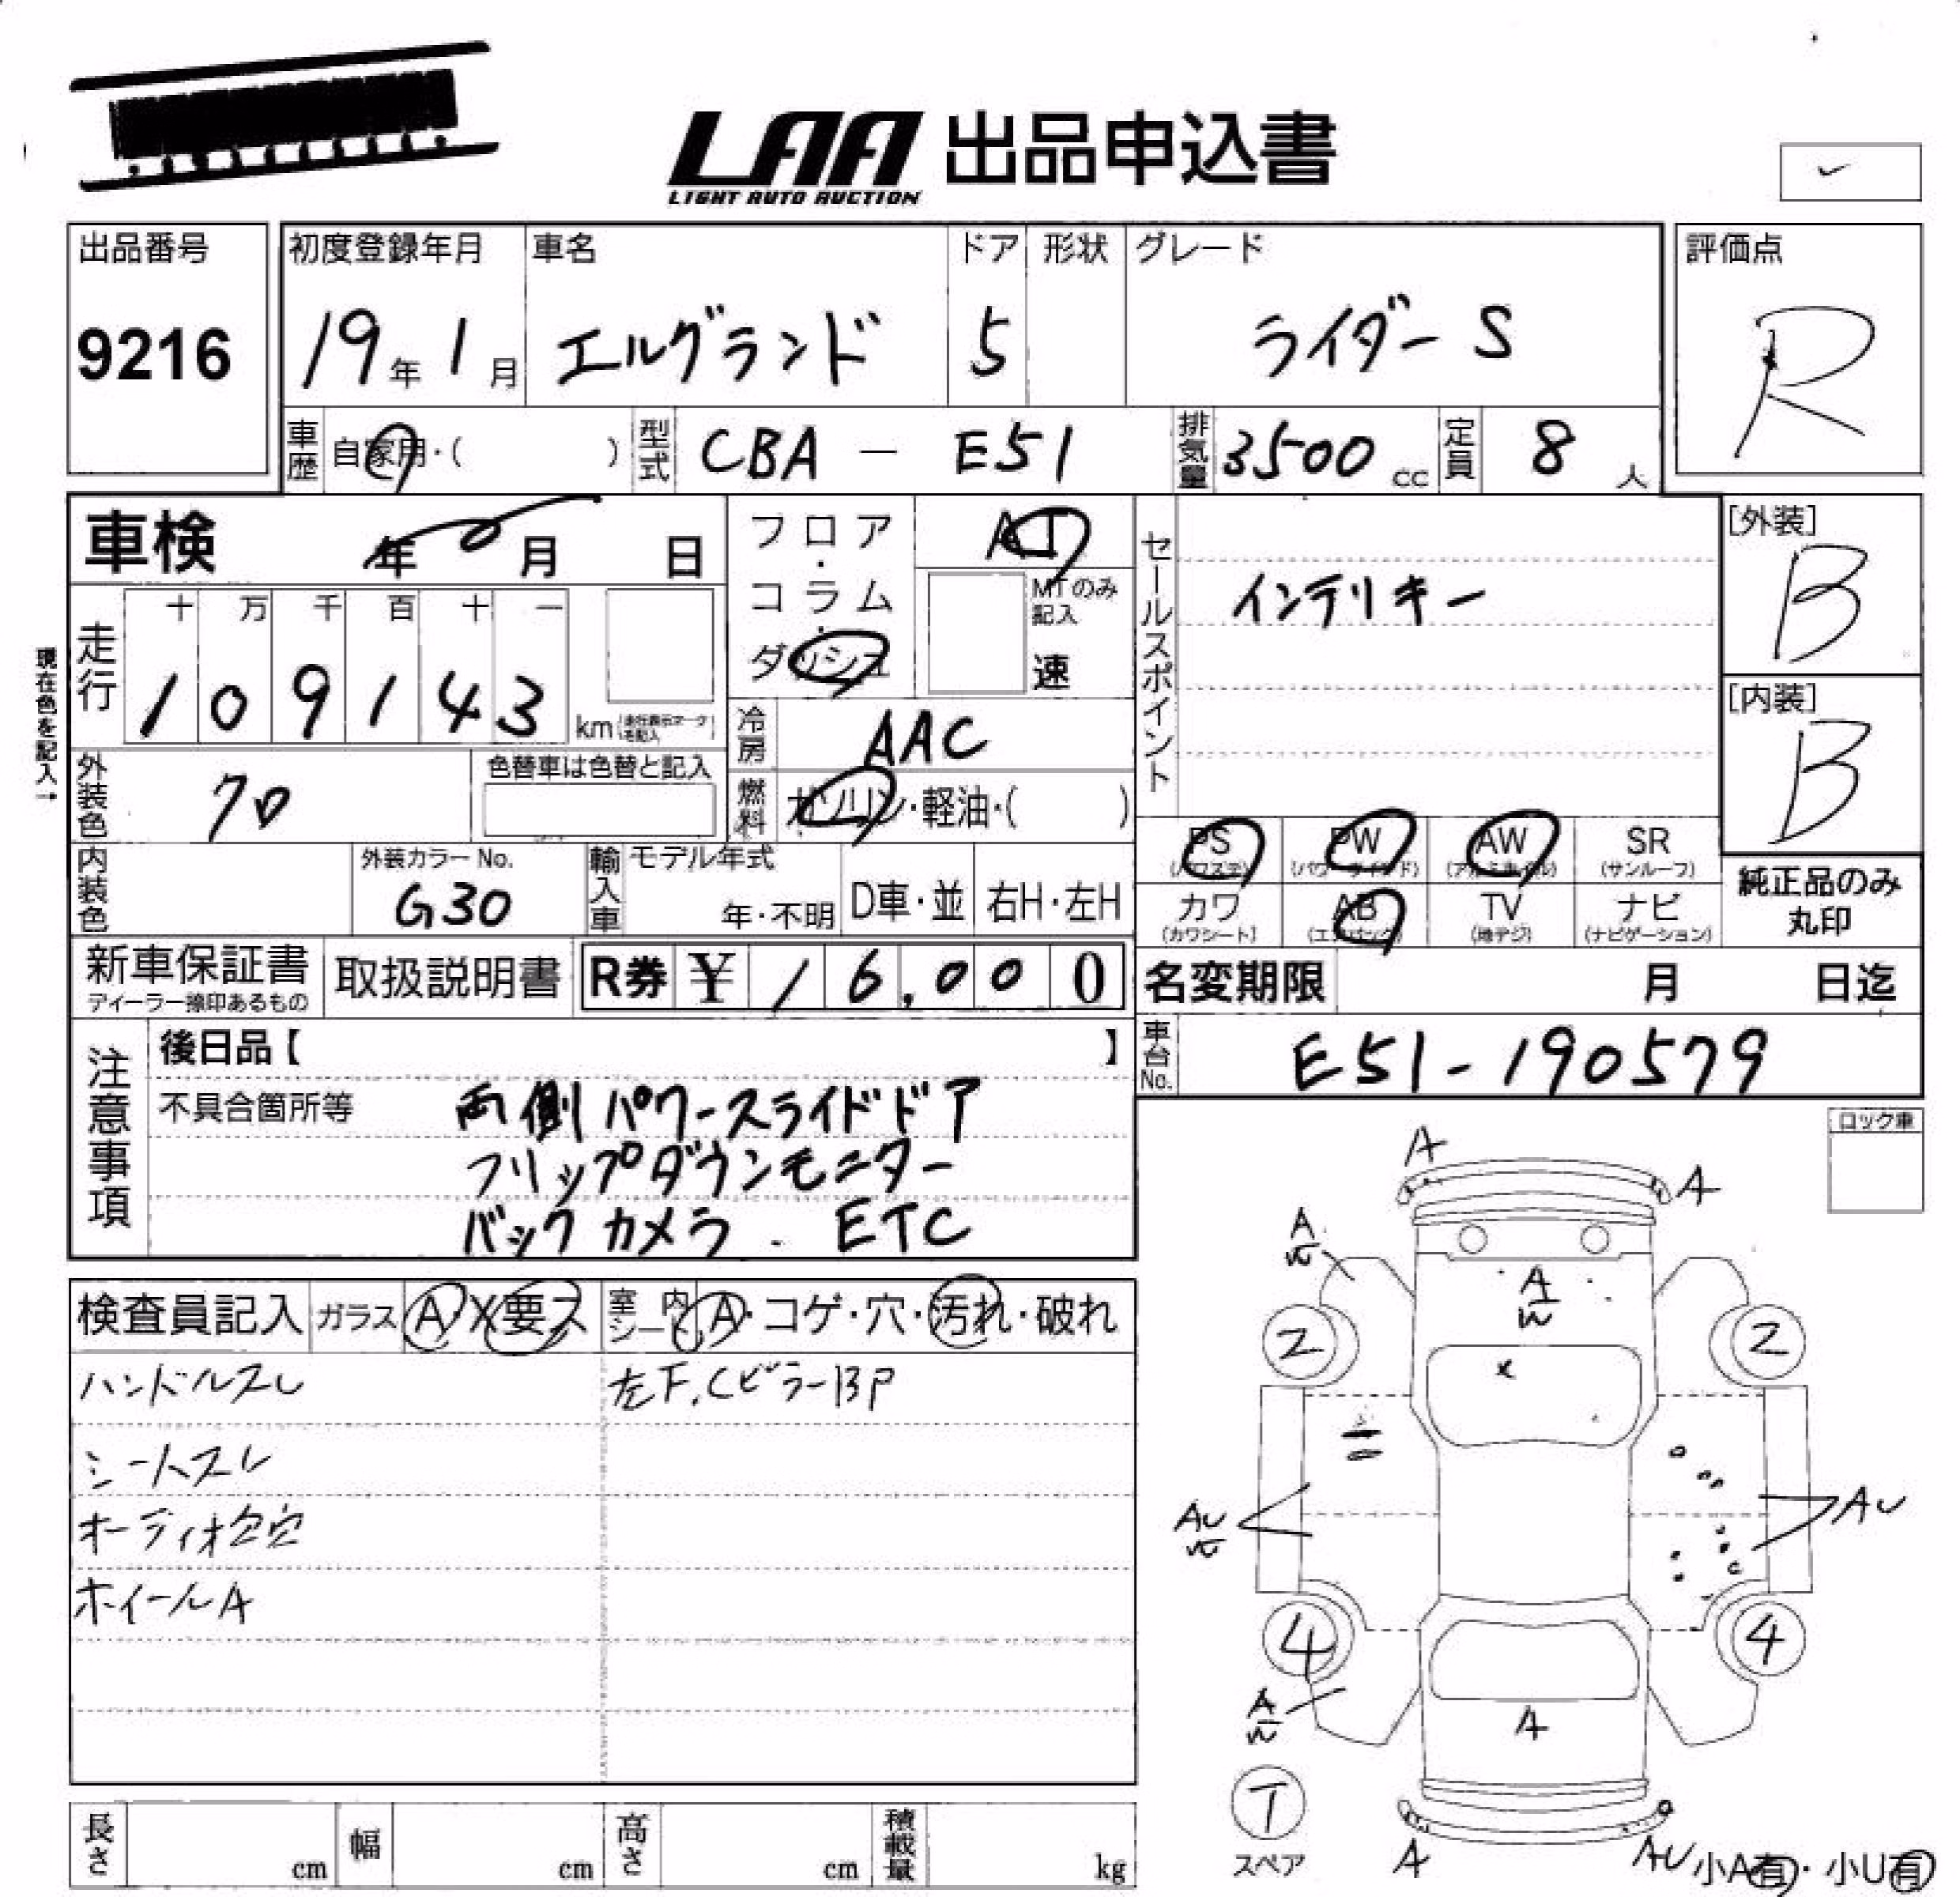 LAA 出品申込書
LIGHT AUTO AUCTION
出品番号
9216
初度登録年月
19年1月
車名
エルグランド
ドア
5
形状
グレード
ライダー S
評価点
R
車歴
自家用・( )
型式
CBA - E51
排気量
3500 cc
定員
8 人
車検 年 月 日
フロア・コラム・ダッシュ
AT
MTのみ記入
速
セールスポイント
インテリキー
[外装]
B
[内装]
B
現在色を記入→
走行
十 万 千 百 十 一
1 0 9 1 4 3 km
(走行表示マークを記入)
冷房
AAC
燃料
ガソリン・軽油・( )
外装色
クロ
色替車は色替と記入
内装色
外装カラー No.
G30
輸入車
モデル年式
年・不明
D車・並
右H・左H
PS
(パワステ)
PW
(パワーウインド)
AW
(アルミホイル)
SR
(サンルーフ)
カワ
(カワシート)
AB
(エアバック)
TV
(地デジ)
ナビ
(ナビゲーション)
純正品のみ
丸印
新車保証書
ディーラー捺印あるもの
取扱説明書
R券 ¥ 16,000
名変期限 月 日迄
車台No.
E51-190579
注意事項
後日品【 】
不具合箇所等
両側パワースライドドア
フリップダウンモニター
バックカメラ . ETC
ロック車
検査員記入
ガラス A X 要ス
室内シート A・コゲ・穴・汚れ・破れ
ハンドルスレ
左F.CピラーBP
シートスレ
オーディオ欠
ホイールA
A
A
A
A
W
2
2
x
AU
AU
4
4
A
W
A
T
スペア
A
AU
小A有・小U有
長さ cm
幅 cm
高さ cm
積載量 kg